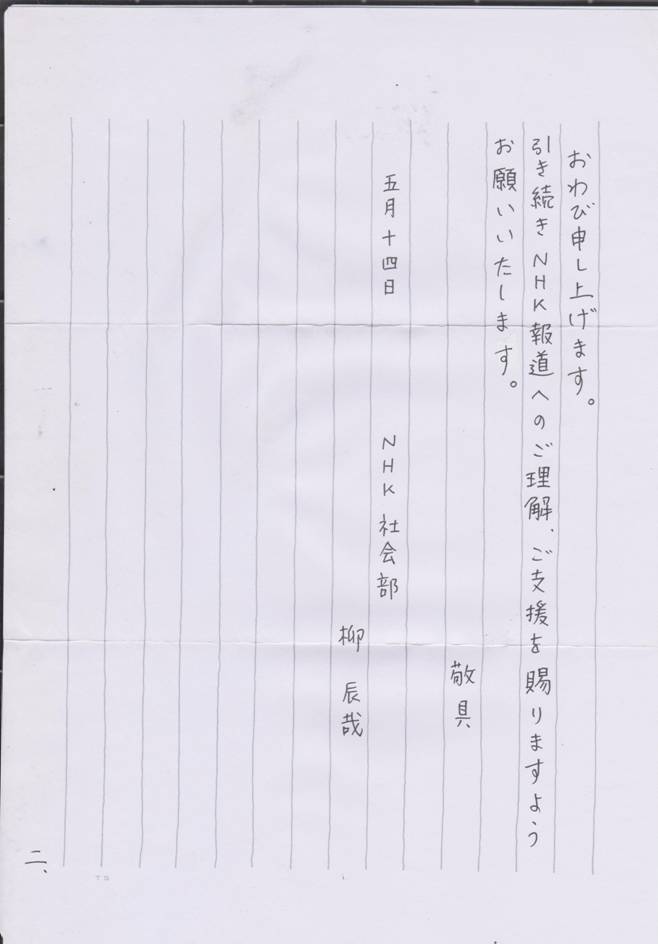 おわび申し上げます。
引き続きNHK報道へのご理解、ご支援を賜りますよう
お願いいたします。
敬具
五月十四日
NHK 社会部
柳 辰哉
二、